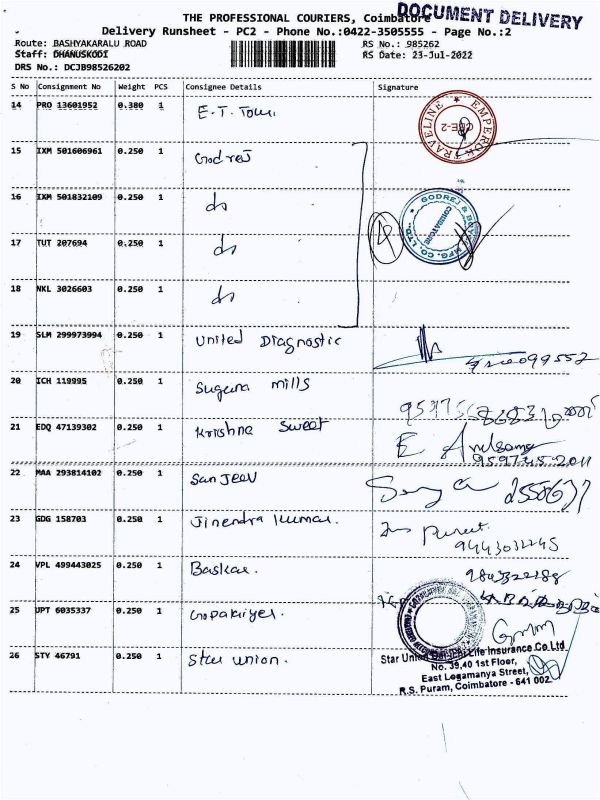 THE PROFESSIONAL COURIERS, Coimbatore
DOCUMENT DELIVERY
Delivery Runsheet - PC2 - Phone No.:0422-3505555 - Page No.:2
Route: BASHYAKARALU ROAD RS No.: 985262
Staff: DHANUSKODI RS Date: 23-Jul-2022
DRS No.: DCJB98526202
S No Consignment No Weight PCS Consignee Details Signature
14 PRO 13601952 0.380 1 E.T. Tour.
EMPEROR TRAVELINE
CBE-2
15 IXM 501606961 0.250 1 Godrej
16 IXM 501832109 0.250 1 do
GODREJ & BOYCE MFG. CO. LTD.
COIMBATORE
17 TUT 207694 0.250 1 do
18 NKL 3026603 0.250 1 do
19 SLM 299973994 0.250 1 United Diagnostic
20 ICH 119995 0.250 1 Suguna mills
21 EDQ 47139302 0.250 1 Krishna Sweet
22 MAA 293814102 0.250 1 Sanjeev
23 GDG 158703 0.250 1 Jinendra kumar.
9443032245
24 VPL 499443025 0.250 1 Baskar.
25 UPT 6035337 0.250 1
26 STY 46791 0.250 1 Star union.
Star Union Dai-ichi Life Insurance Co Ltd
No. 39,40 1st Floor,
East Logamanya Street,
R.S. Puram, Coimbatore - 641 002